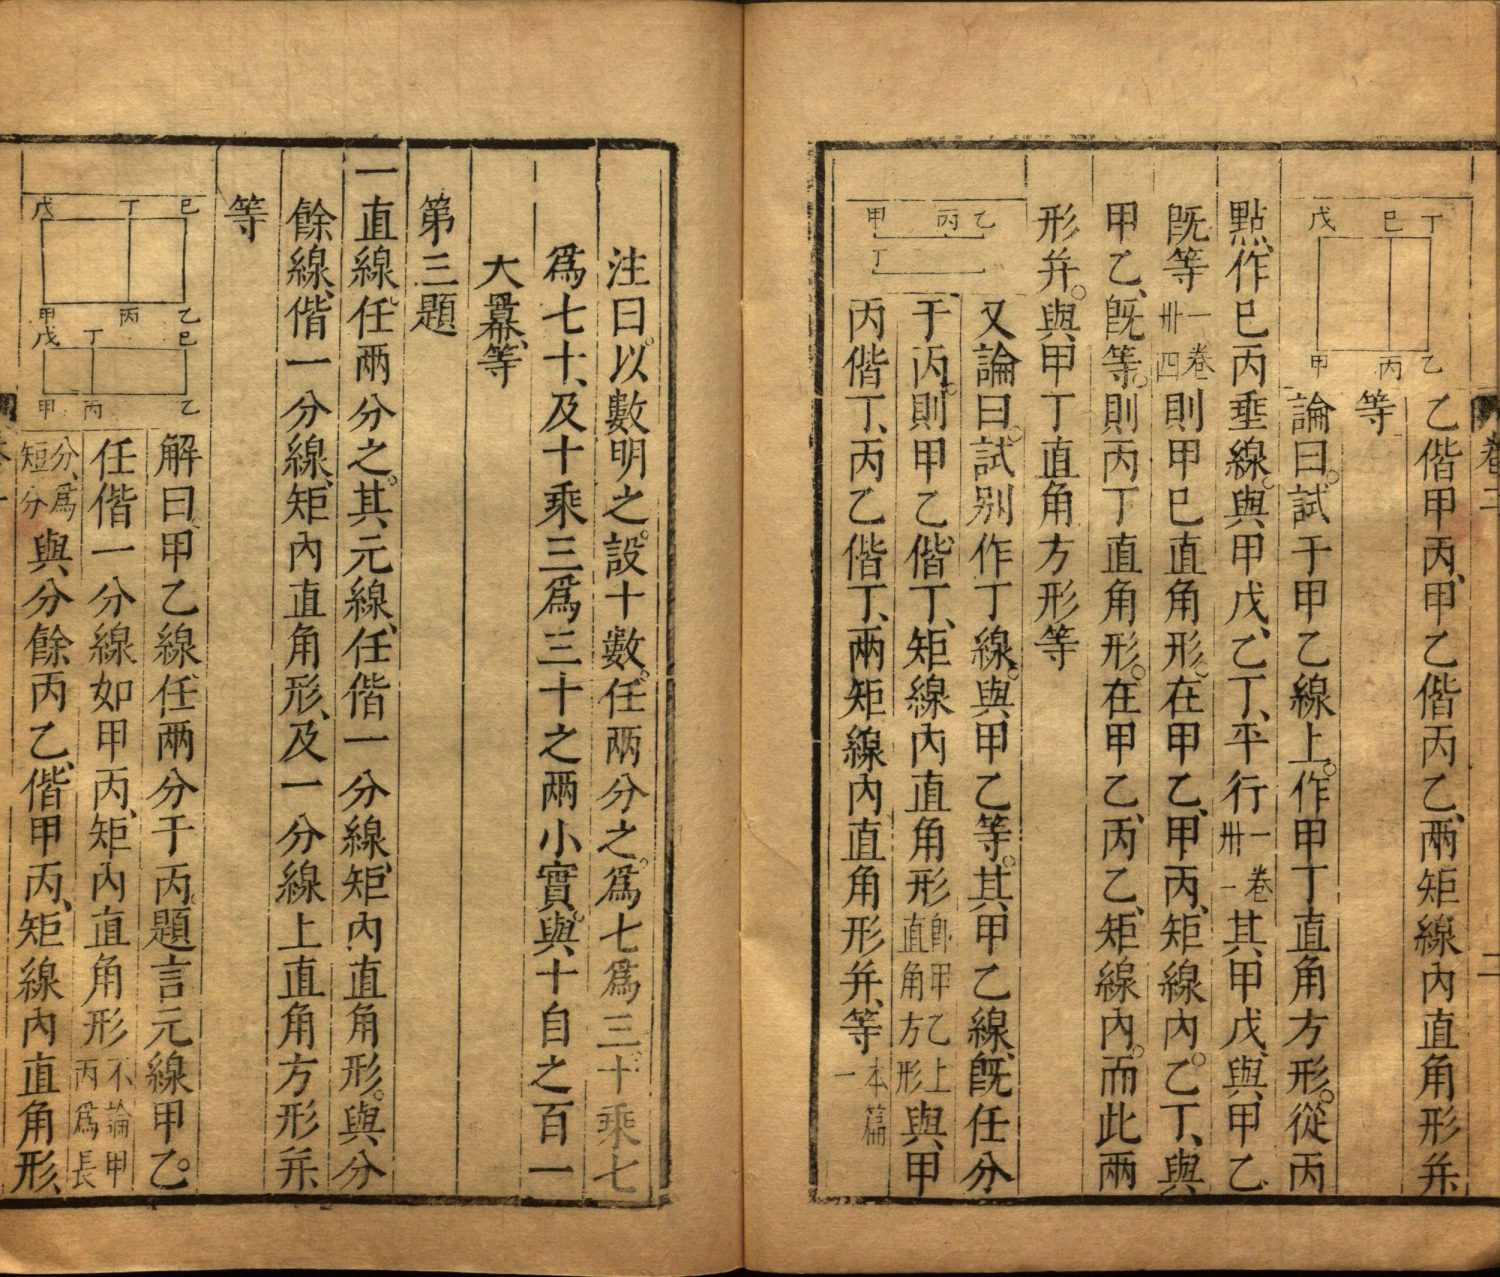 丁 巳 戊
乙 丙 甲
乙偕甲丙、甲乙偕丙乙、兩矩線內直角形并
等
論曰。試于甲乙線上。作甲丁直角方形。從丙
點、作巳丙垂線。與甲戊、乙丁、平行一卷卅一其甲戊、與甲乙
既等一卷卅四則甲巳直角形。在甲乙、甲丙、矩線內。乙丁、與
甲乙、既等。則丙丁直角形。在甲乙、丙乙、矩線內。而此兩
形并。與甲丁直角方形等
乙 丙 甲
丁
又論曰。試別作丁線。與甲乙等。其甲乙線、既任分
于丙。則甲乙偕丁、矩線內直角形即甲乙上直角方形與甲
丙偕丁、丙乙偕丁、兩矩線內直角形并、等本篇一
卷二
二
注曰。以數明之。設十數。任兩分之。爲七爲三。十乘七
爲七十、及十乘三爲三十之兩小實。與十自之百一
大冪、等
第三題
一直線。任兩分之。其元線、任偕一分線、矩內直角形。與分
餘線、偕一分線、矩內直角形、及一分線上直角方形并
等
巳 丁 戊
乙 丙 甲
巳 丁 戊
乙 丙 甲
解曰。甲乙線、任兩分于丙。題言元線甲乙。
任偕一分線如甲丙、矩內直角形不論甲丙爲長
分、爲短分與分餘丙乙、偕甲丙、矩線內直角形、